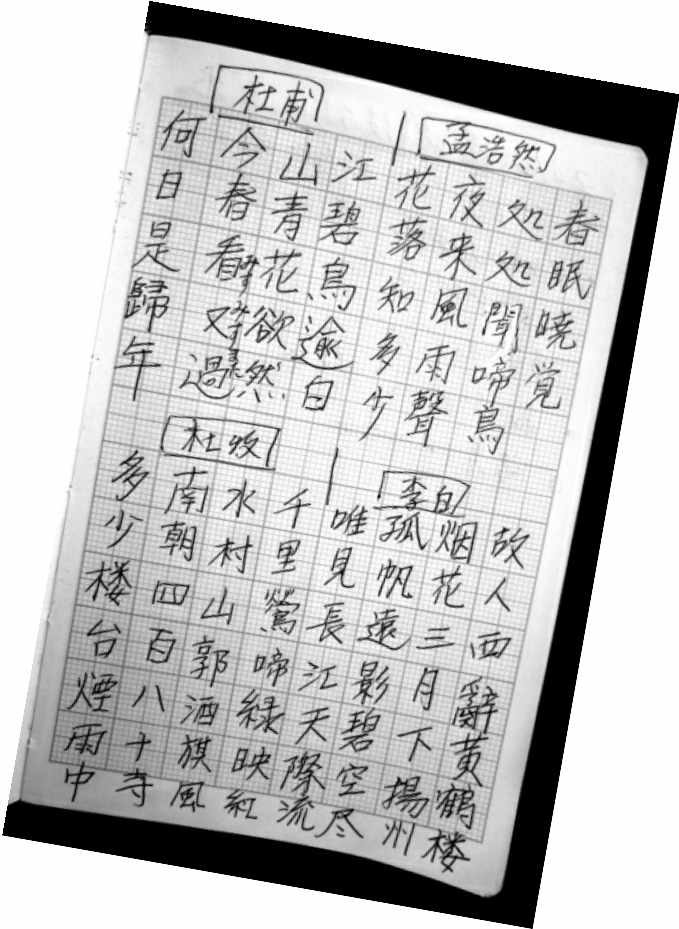 孟浩然
春眠暁覚
処処聞啼鳥
夜来風雨聲
花落知多少
杜甫
江碧鳥逾白
山青花欲然
今春看又過
何日是歸年
李白
故人西辭黄鶴楼
烟花三月下揚州
孤帆遠影碧空尽
唯見長江天際流
杜牧
千里鶯啼緑映紅
水村山郭酒旗風
南朝四百八十寺
多少楼台煙雨中